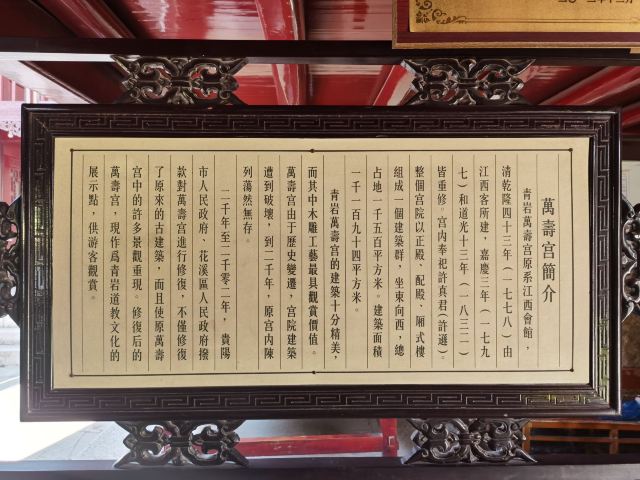 萬壽宮簡介
青岩萬壽宮原系江西會館，
清乾隆四十三年（一七七八）由
江西客所建，嘉慶三年（一七九
七）和道光十三年（一八三二）
皆重修。宮內奉祀許真君（許遜）。
整個宮院以正殿、配殿、厢式樓
組成一個建築群，坐東向西，總
占地一千五百平方米。建築面積
一千一百九十四平方米。
青岩萬壽宮的建築十分精美，
而其中木雕工藝最具觀賞價值。
萬壽宮由于歷史變遷，宮院建築
遭到破壞，到二千年，原宮內陳
列蕩然無存。
二千年至二千零二年，貴陽
市人民政府、花溪區人民政府撥
款對萬壽宮進行修復，不僅修復
了原來的古建築，而且使原萬壽
宮中的許多景觀重現。修復后的
萬壽宮，現作爲青岩道教文化的
展示點，供游客觀賞。